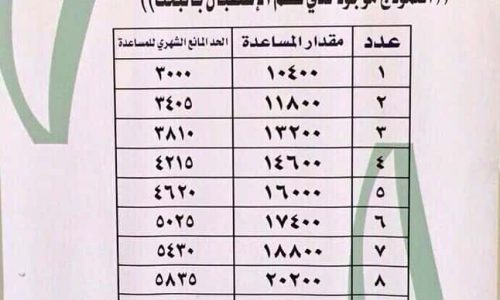 عدد مقدار المساعدة الحد المانع الشهري للمساعدة
١ ١٠٤٠٠ ٣٠٠٠
٢ ١١٨٠٠ ٣٤٠٥
٣ ١٣٢٠٠ ٣٨١٠
٤ ١٤٦٠٠ ٤٢١٥
٥ ١٦٠٠٠ ٤٦٢٠
٦ ١٧٤٠٠ ٥٠٢٥
٧ ١٨٨٠٠ ٥٤٣٠
٨ ٢٠٢٠٠ ٥٨٣٥